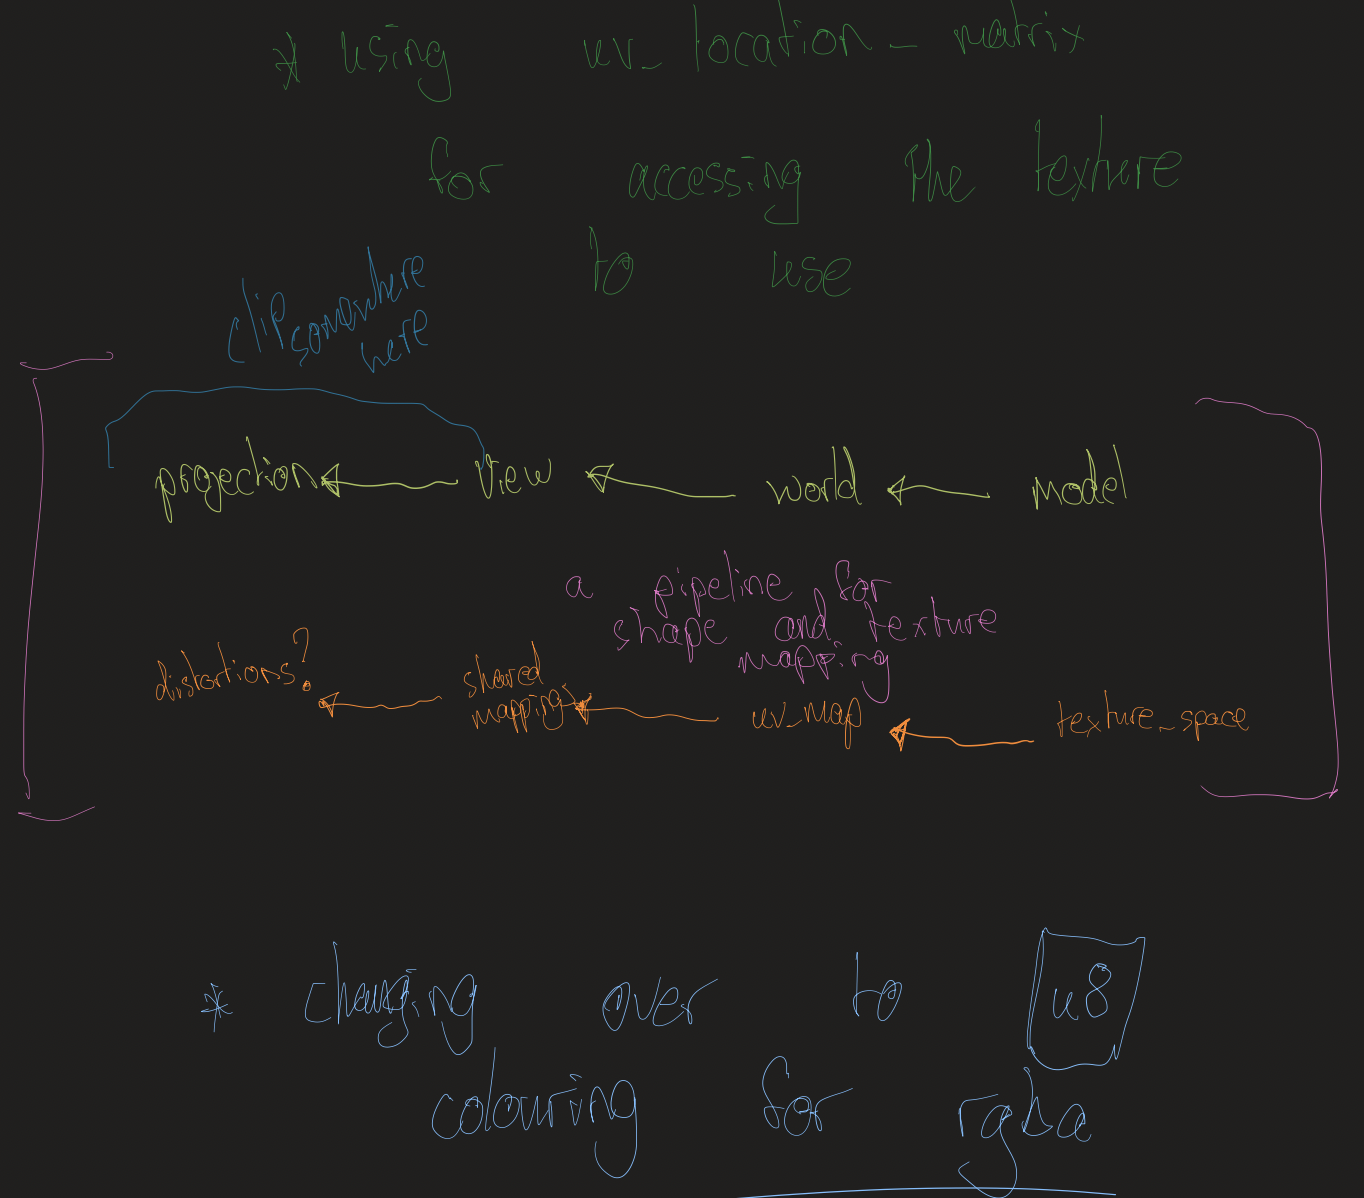 * using uv_location_matrix
for accessing the texture
to use
clip somewhere
here
projection view world model
a pipeline for
shape and texture
mapping
distortions? shared
mapping uv_map texture_space
* changing over to u8
colouring for rgba